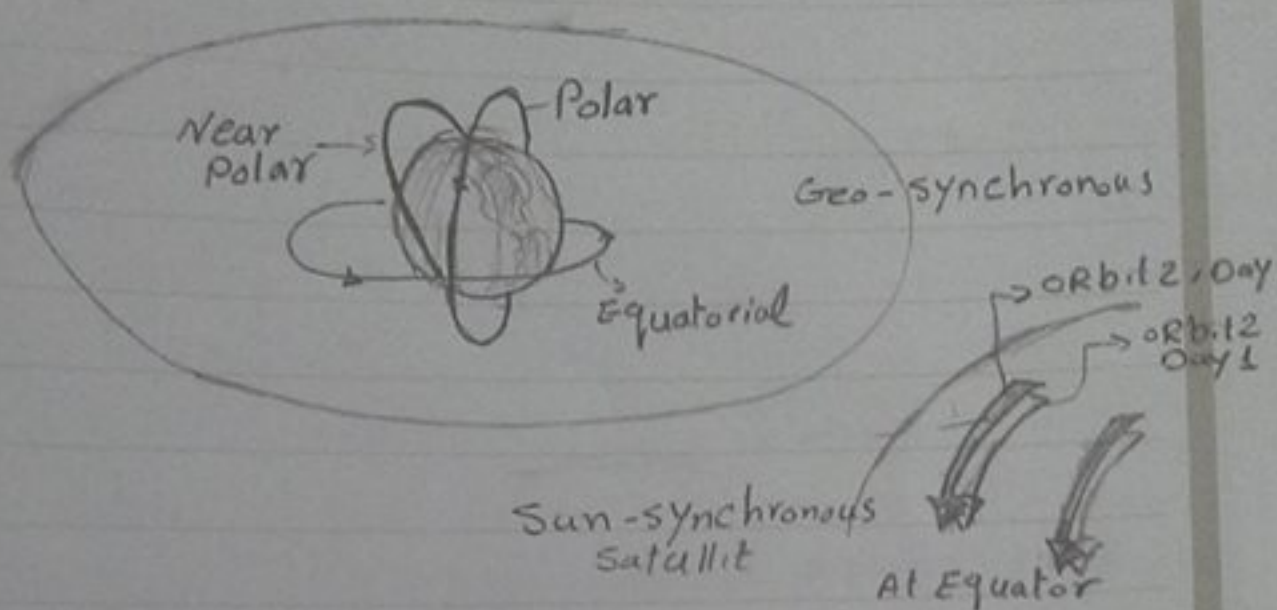 Polar
Near
Polar
Geo-synchronous
Equatorial
ORbit 2, Day
ORbit 2
Day 1
Sun-synchronous
Satellit
At Equator